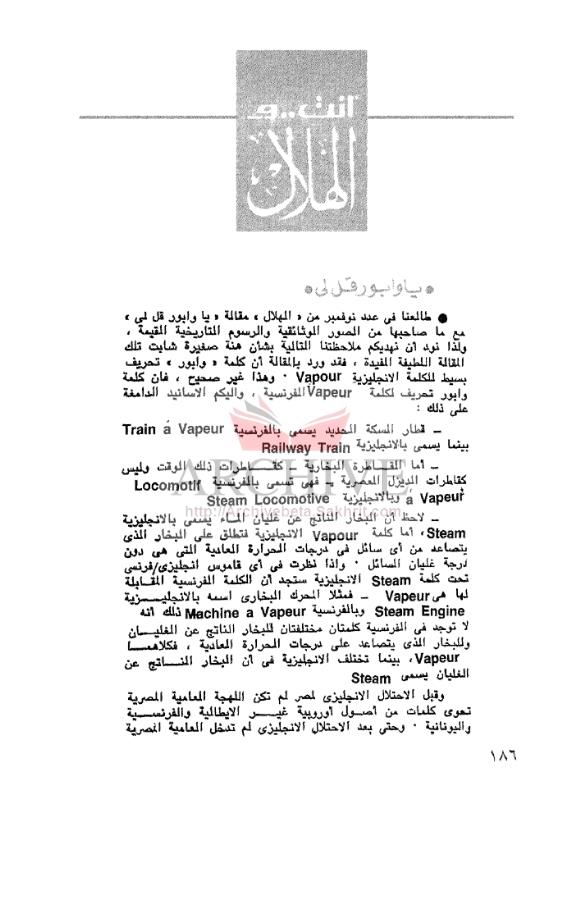 أنت .. و
الهلال
* يا وابور قل لى *
● طالعنا فى عدد نوفمبر من « الهلال » مقالة « يا وابور قل لى »
مع ما صاحبها من الصور الوثائقية والرسوم التاريخية القيمة ،
ولذا نود أن نهديكم ملاحظتنا التالية بشأن هنة صغيرة شابت تلك
المقالة اللطيفة المفيدة ، فقد ورد بالمقالة أن كلمة « وابور » تحريف
بسيط للكلمة الانجليزية Vapour ٠ وهذا غير صحيح ، فان كلمة
وابور تحريف لكلمة Vapeur الفرنسية ، واليكم الاسانيد الدامغة
على ذلك :
ــ قطار السكة الحديد يسمى بالفرنسية Train á Vapeur
بينما يسمى بالانجليزية Railway Train
ــ أما القـــاطرة البخارية ــ كقـــاطرات ذلك الوقت وليس
كقاطرات الديزل العصرية ــ فهى تسمى بالفرنسية Locomotif
a Vapeur وبالانجليزية Steam Locomotive
ــ لاحظ أن البخار الناتج عن غليان المـــاء يسمى بالانجليزية
Steam، أما كلمة Vapour الانجليزية فتطلق على البخار الذى
يتصاعد من أى سائل فى درجات الحرارة العادية التى هى دون
درجة غليان السائل ٠ واذا نظرت فى أى قاموس انجليزى/فرنسى
تحت كلمة Steam الانجليزية ستجد أن الكلمة الفرنسية المقـــابلة
لها هى Vapeur ــ فمثلا المحرك البخارى اسمه بالانجليـــــزية
Steam Engine وبالفرنسية Machine a Vapeur ذلك أنه
لا توجد فى الفرنسية كلمتان مختلفتان للبخار الناتج عن الغليــــان
وللبخار الذى يتصاعد على درجات الحرارة العادية ، فكلاهمـــا
Vapeur، بينما تختلف الانجليزية فى أن البخار النـــاتج عن
الغليان يسمى Steam
وقبل الاحتلال الانجليزى لمصر لم تكن اللهجة العامية المصرية
تحوى كلمات من أصـــول أوروبية غيـــر الايطالية والفرنســـية
واليونانية ٠ وحتى بعد الاحتلال الانجليزى لم تدخل العامية المصرية
١٨٦
ARCHIVE
http://Archivebeta.Sakhrit.com